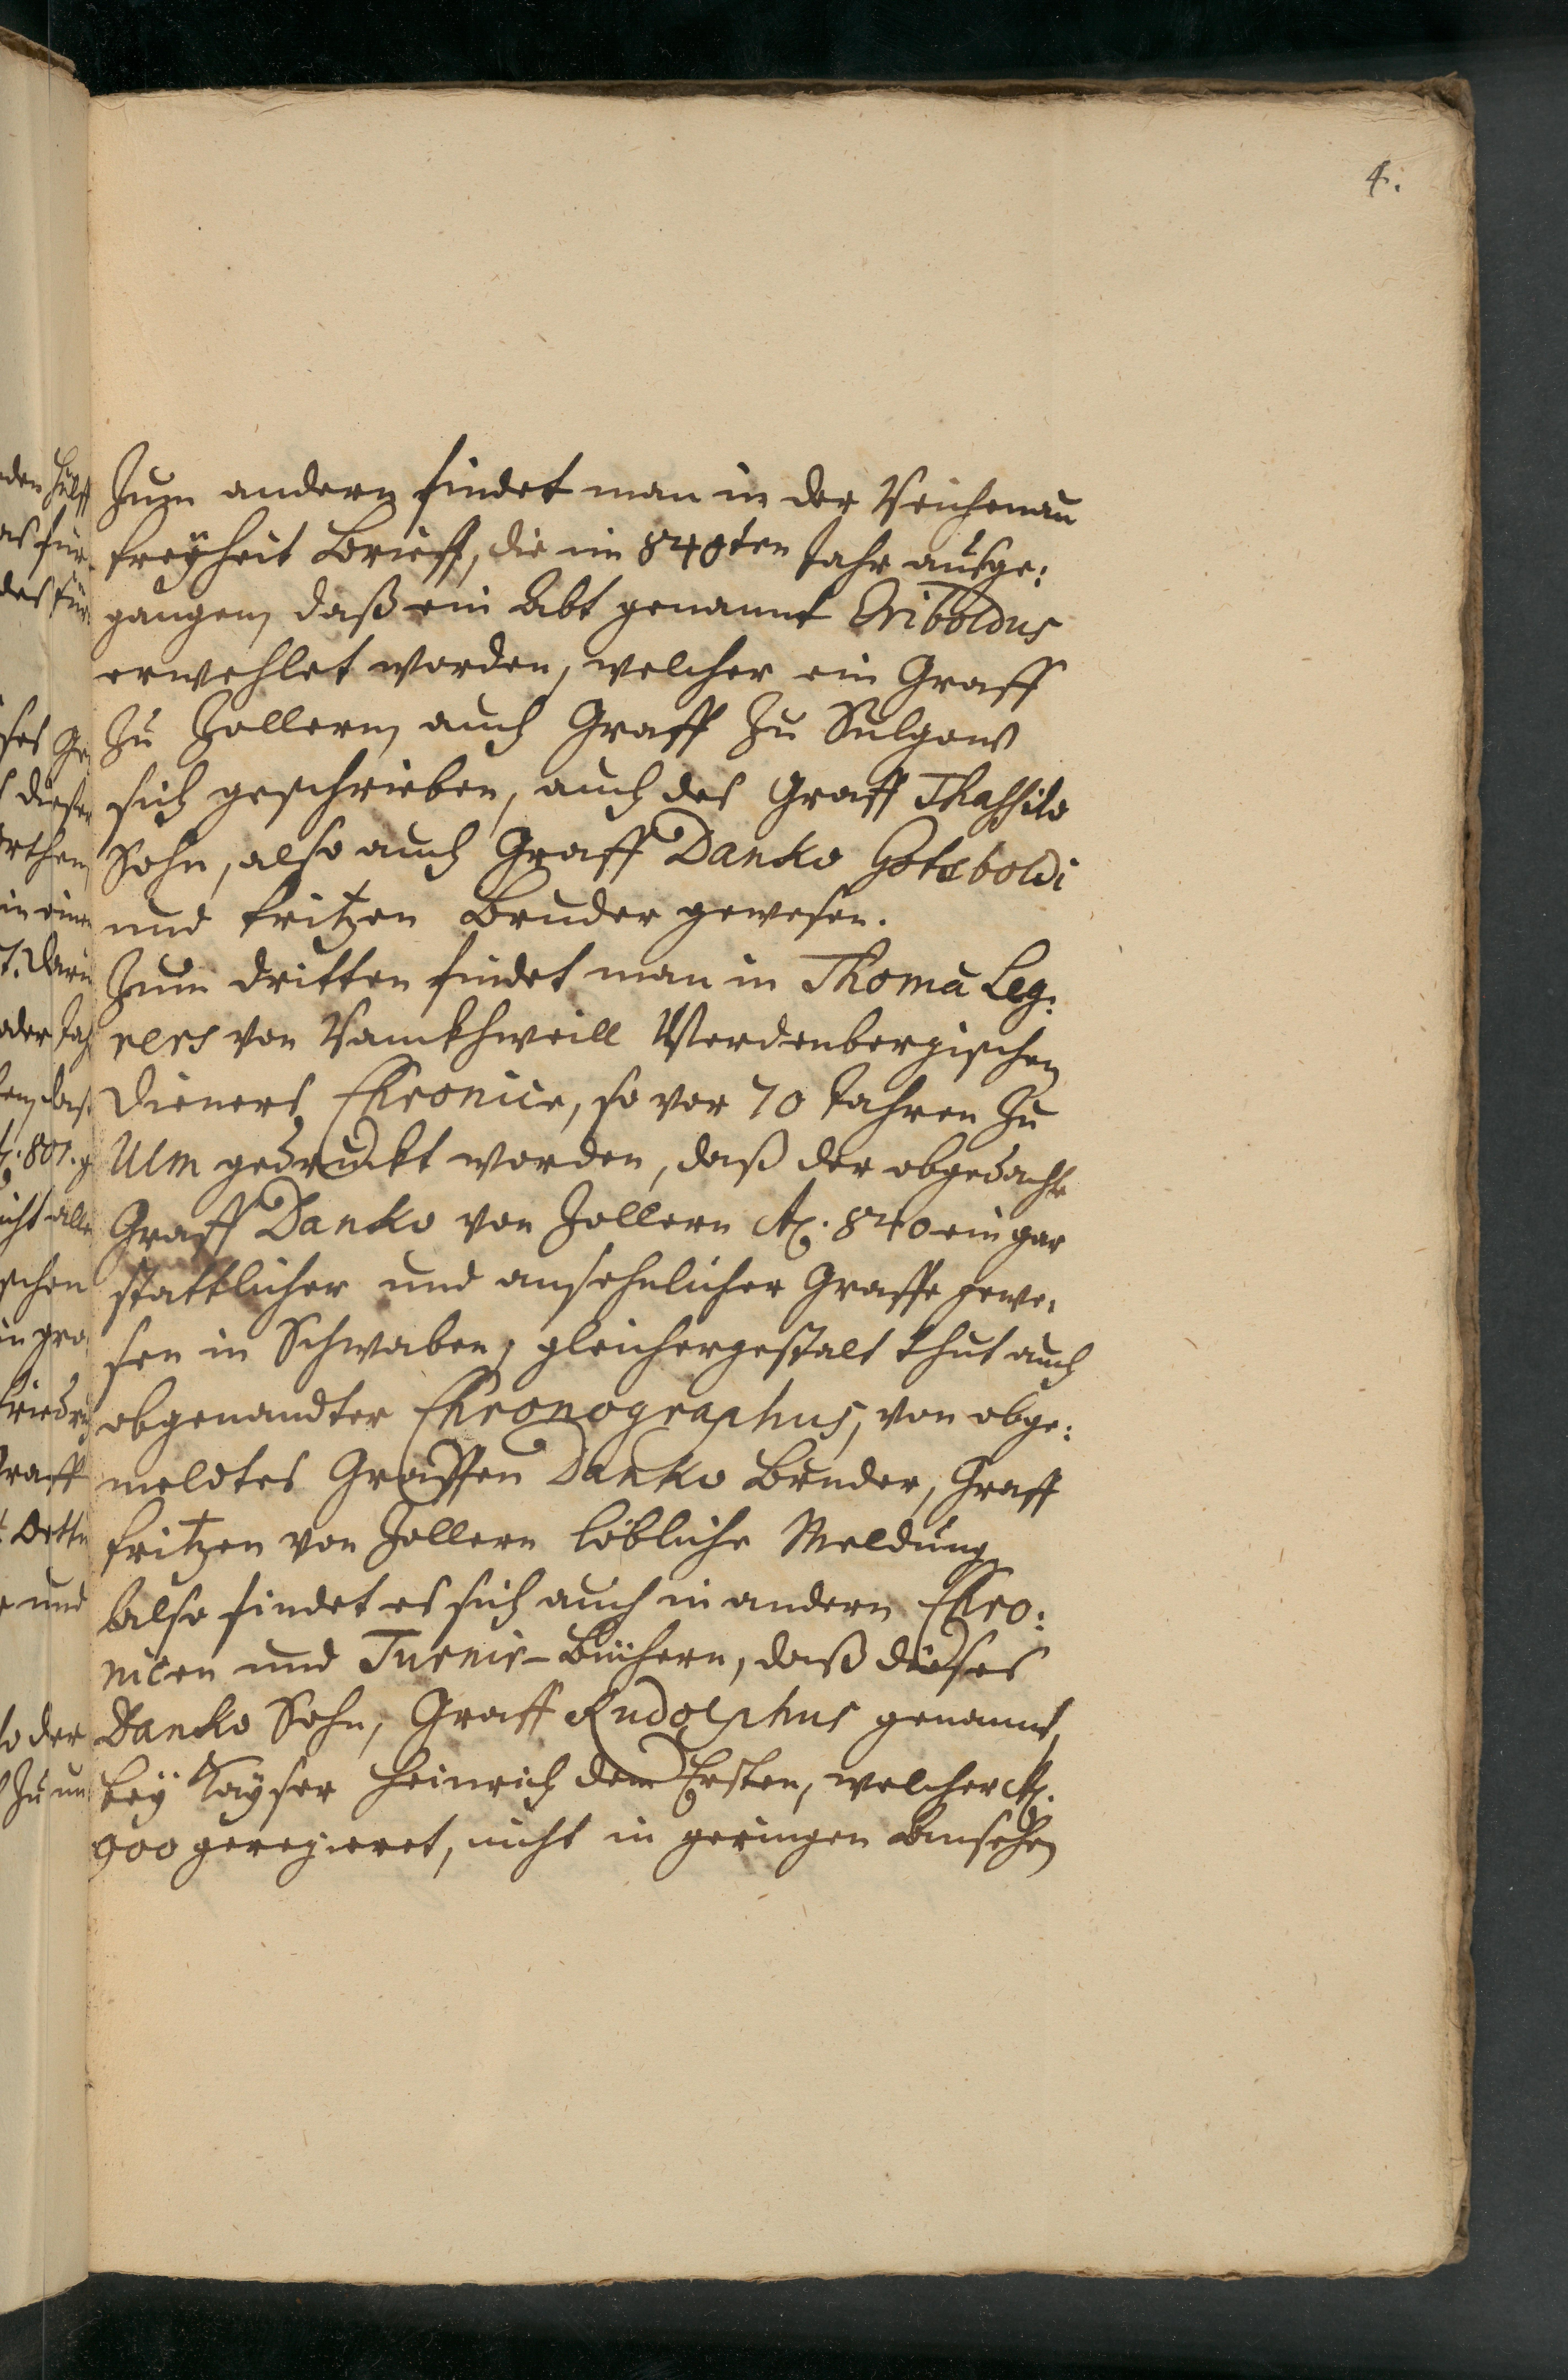 4.
Zum andern findet man in der Reichenau
freyheit Brieff, die im 840ten Jahr ausge:
gangen, daß ein Abt genannt Eriboldus
erwehlet worden, welcher ein Graff
zu Zollern, auch Graff zu Sulgaw
sich geschrieben, auch des Graff Thassilo
Sohn, also auch Graff Danko Goteboldi
und fritzen Bruder gewesen.
Zum dritten findet man in Thoma
von Ranckhweill Werdenbergischen
Dieners Chronice, so vor 70 Jahren zu
Ulm gedruckt worden, daß der obgedachte
Graff Danko von Zollern Ao. 840 ein gar
stattlicher und ansehnlicher Graffe gewe:
sen in Schwaben, gleichergestalt thut auch
obgenandter Chronographus, von obge:
meldtes Graffen Danko Bruder, Graff
fritzen von Zollern löbliche Meldung
Also findet es sich auch in andern Chro:
nicen und Turnir-Büchern, daß dieses
Danko Sohn, Graff Rudolphus genannt,
bey Kayser Heinrich dem Ersten, welcher Ao.
900 geregieret, nicht in geringen Ansehen